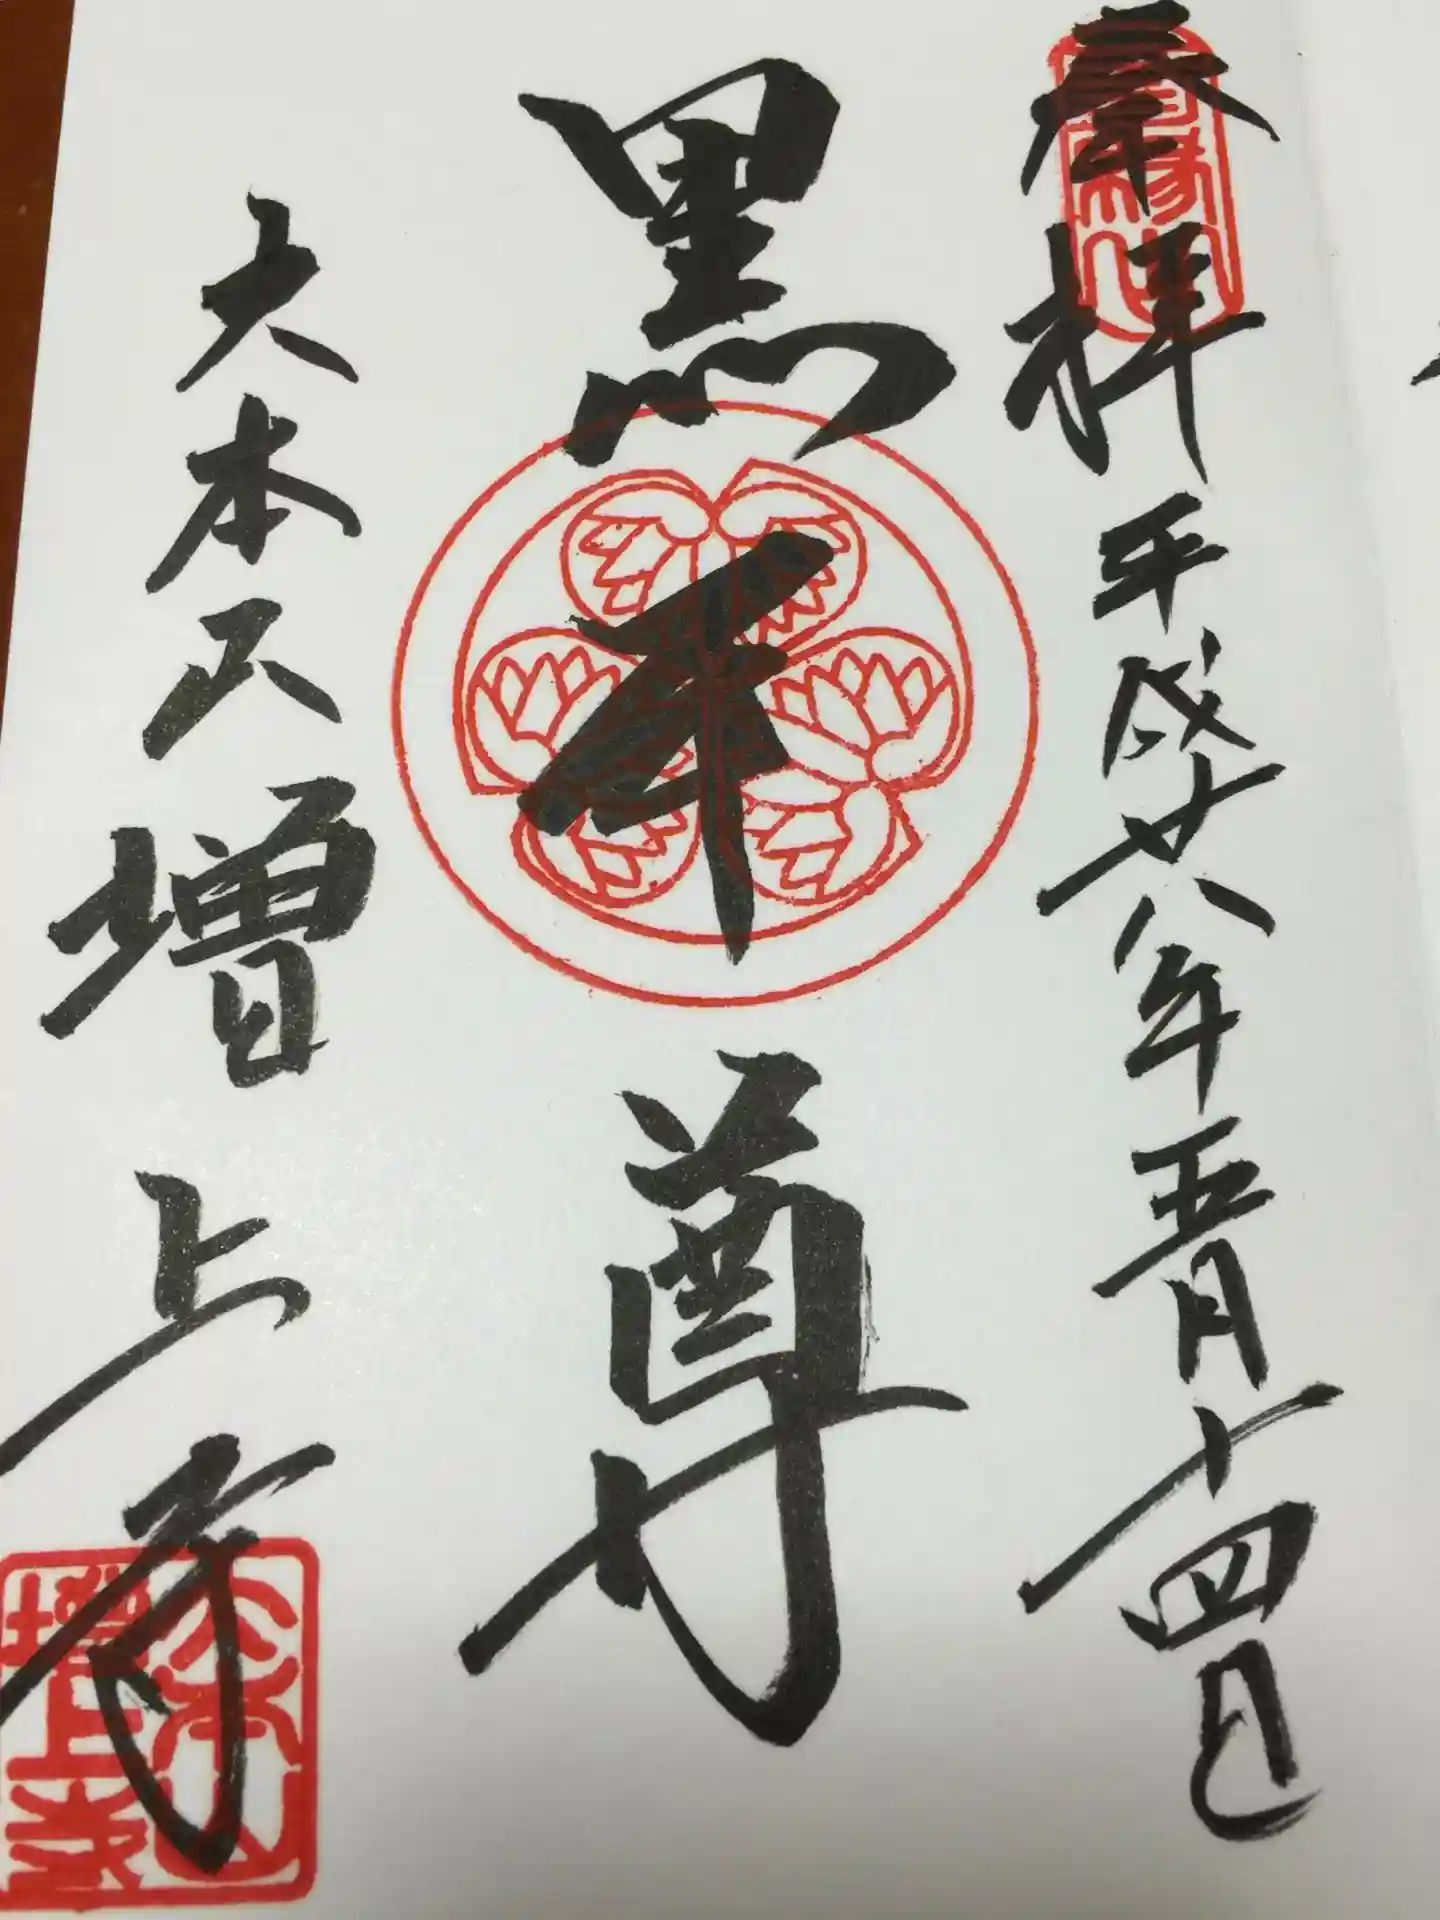 奉拝 平成廿八年五月十四日
黒本尊
大本山 増上寺
大本山
増上寺